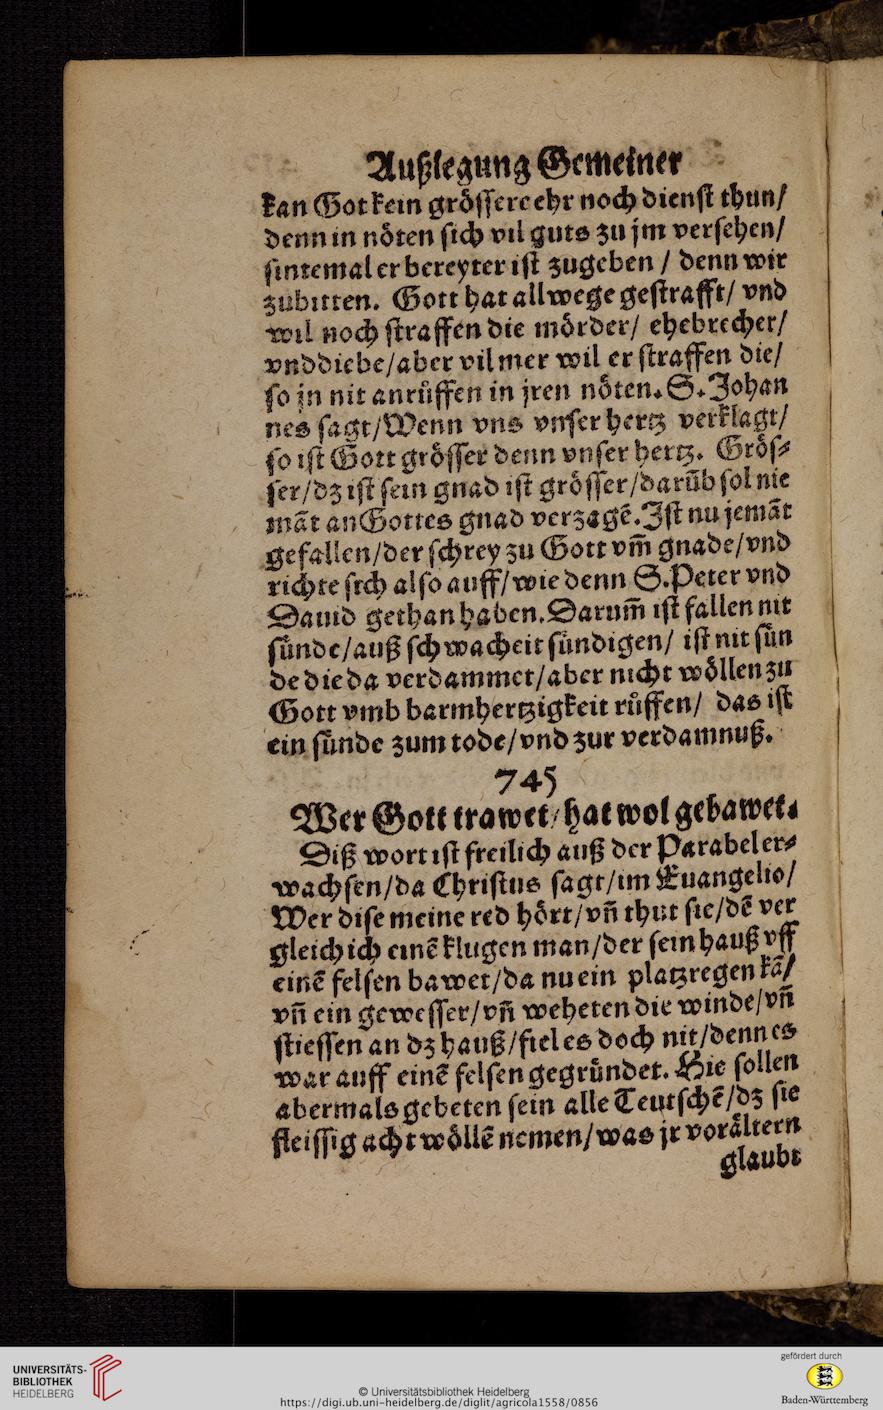 Außlegung Gemeiner
kan Got kein grössere ehr noch dienst thun/
denn in nöten sich vil guts zu jm versehen/
sintemal er bereyter ist zugeben / denn wir
zubitten. Gott hat allwege gestrafft/ vnd
wil noch straffen die mörder/ ehebrecher/
vnd diebe/aber vil mer wil er straffen die/
so jn nit anrůffen in jren nöten. S. Johan
nes sagt/Wenn vns vnser hertz verklagt/
so ist Gott grösser denn vnser hertz. Grös⸗
ser/dz ist sein gnad ist grösser/darũb sol nie
mãt an Gottes gnad verzagẽ. Ist nu jemãt
gefallen/der schrey zu Gott vm̃ gnade/vnd
richte sich also auff/wie denn S. Peter vnd
Dauid gethan haben. Darum̃ ist fallen nit
sünde/auß schwacheit sündigen/ ist nit sün
de die da verdammet/aber nicht wöllen zu
Gott vmb barmhertzigkeit růffen/ das ist
ein sünde zum tode/vnd zur verdamnuß.
745
Wer Gott trawet/hat wol gebawet.
Diß wort ist freilich auß der Parabel er⸗
wachsen/da Christus sagt/im Euangelio/
Wer dise meine red hört/vñ thut sie/dẽ ver
gleich ich einẽ klugen man/der sein hauß vff
einẽ felsen bawet/da nu ein platzregen kã/
vñ ein gewesser/vñ weheten die winde/vñ
stiessen an dz hauß/fiel es doch nit/denn es
war auff einẽ felsen gegründet. Hie sollen
abermals gebeten sein alle Teutschẽ/dz sie
fleissig acht wöllẽ nemen/was jr vorältern
glaubt
UNIVERSITÄTS-
BIBLIOTHEK
HEIDELBERG
© Universitätsbibliothek Heidelberg
https://digi.ub.uni-heidelberg.de/diglit/agricola1558/0856
gefördert durch
Baden-Württemberg